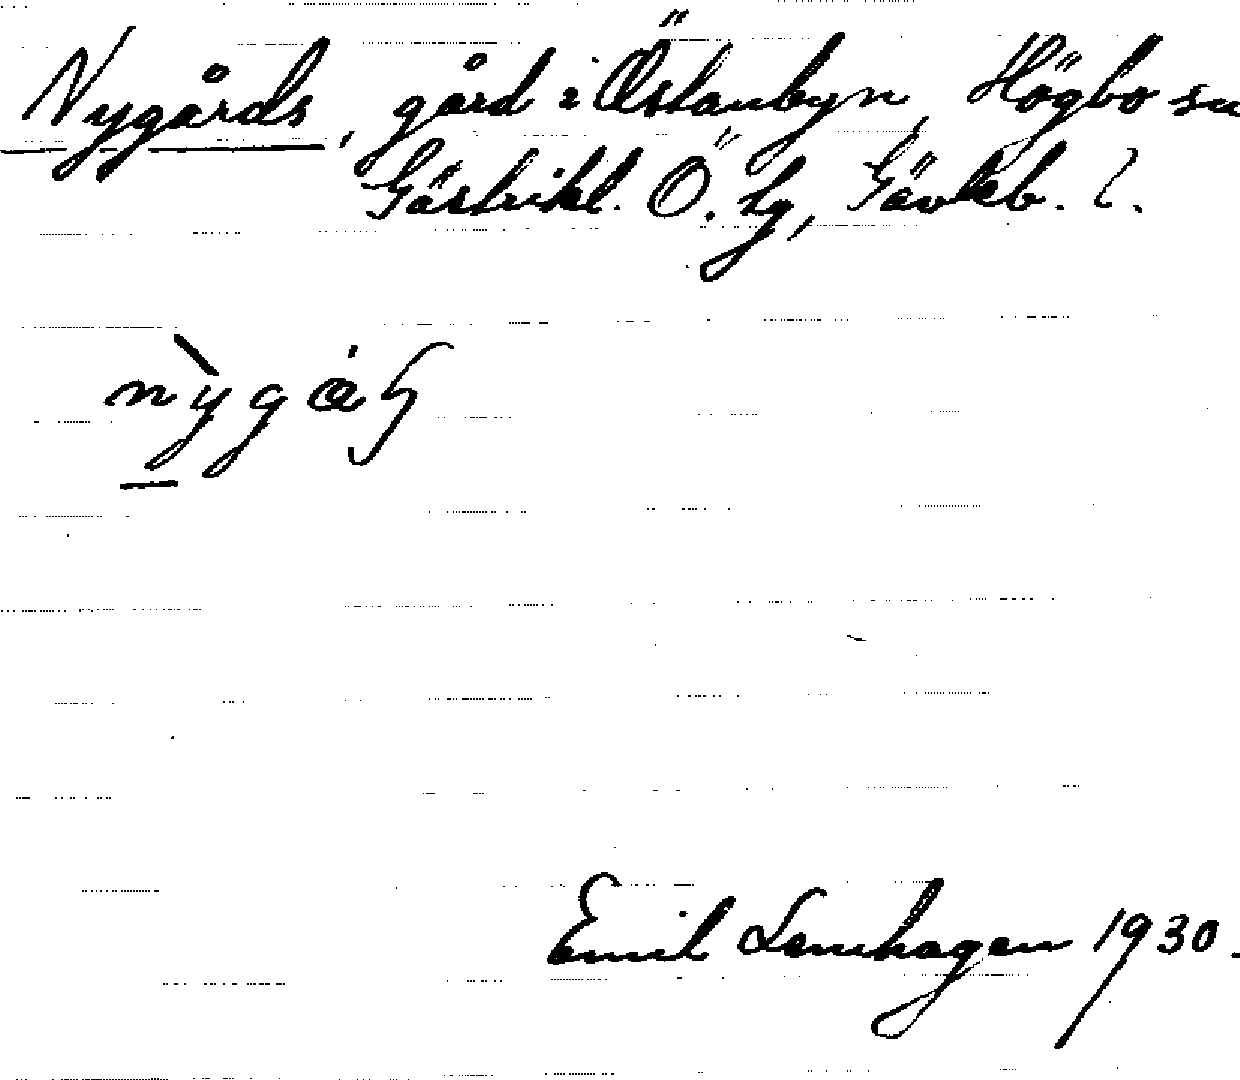 Nygårds, gård i Östanbyn, Högbo sn
Gästrikl. Ö. tg, Gävleb. l.
Emil Lenhagen 1930.